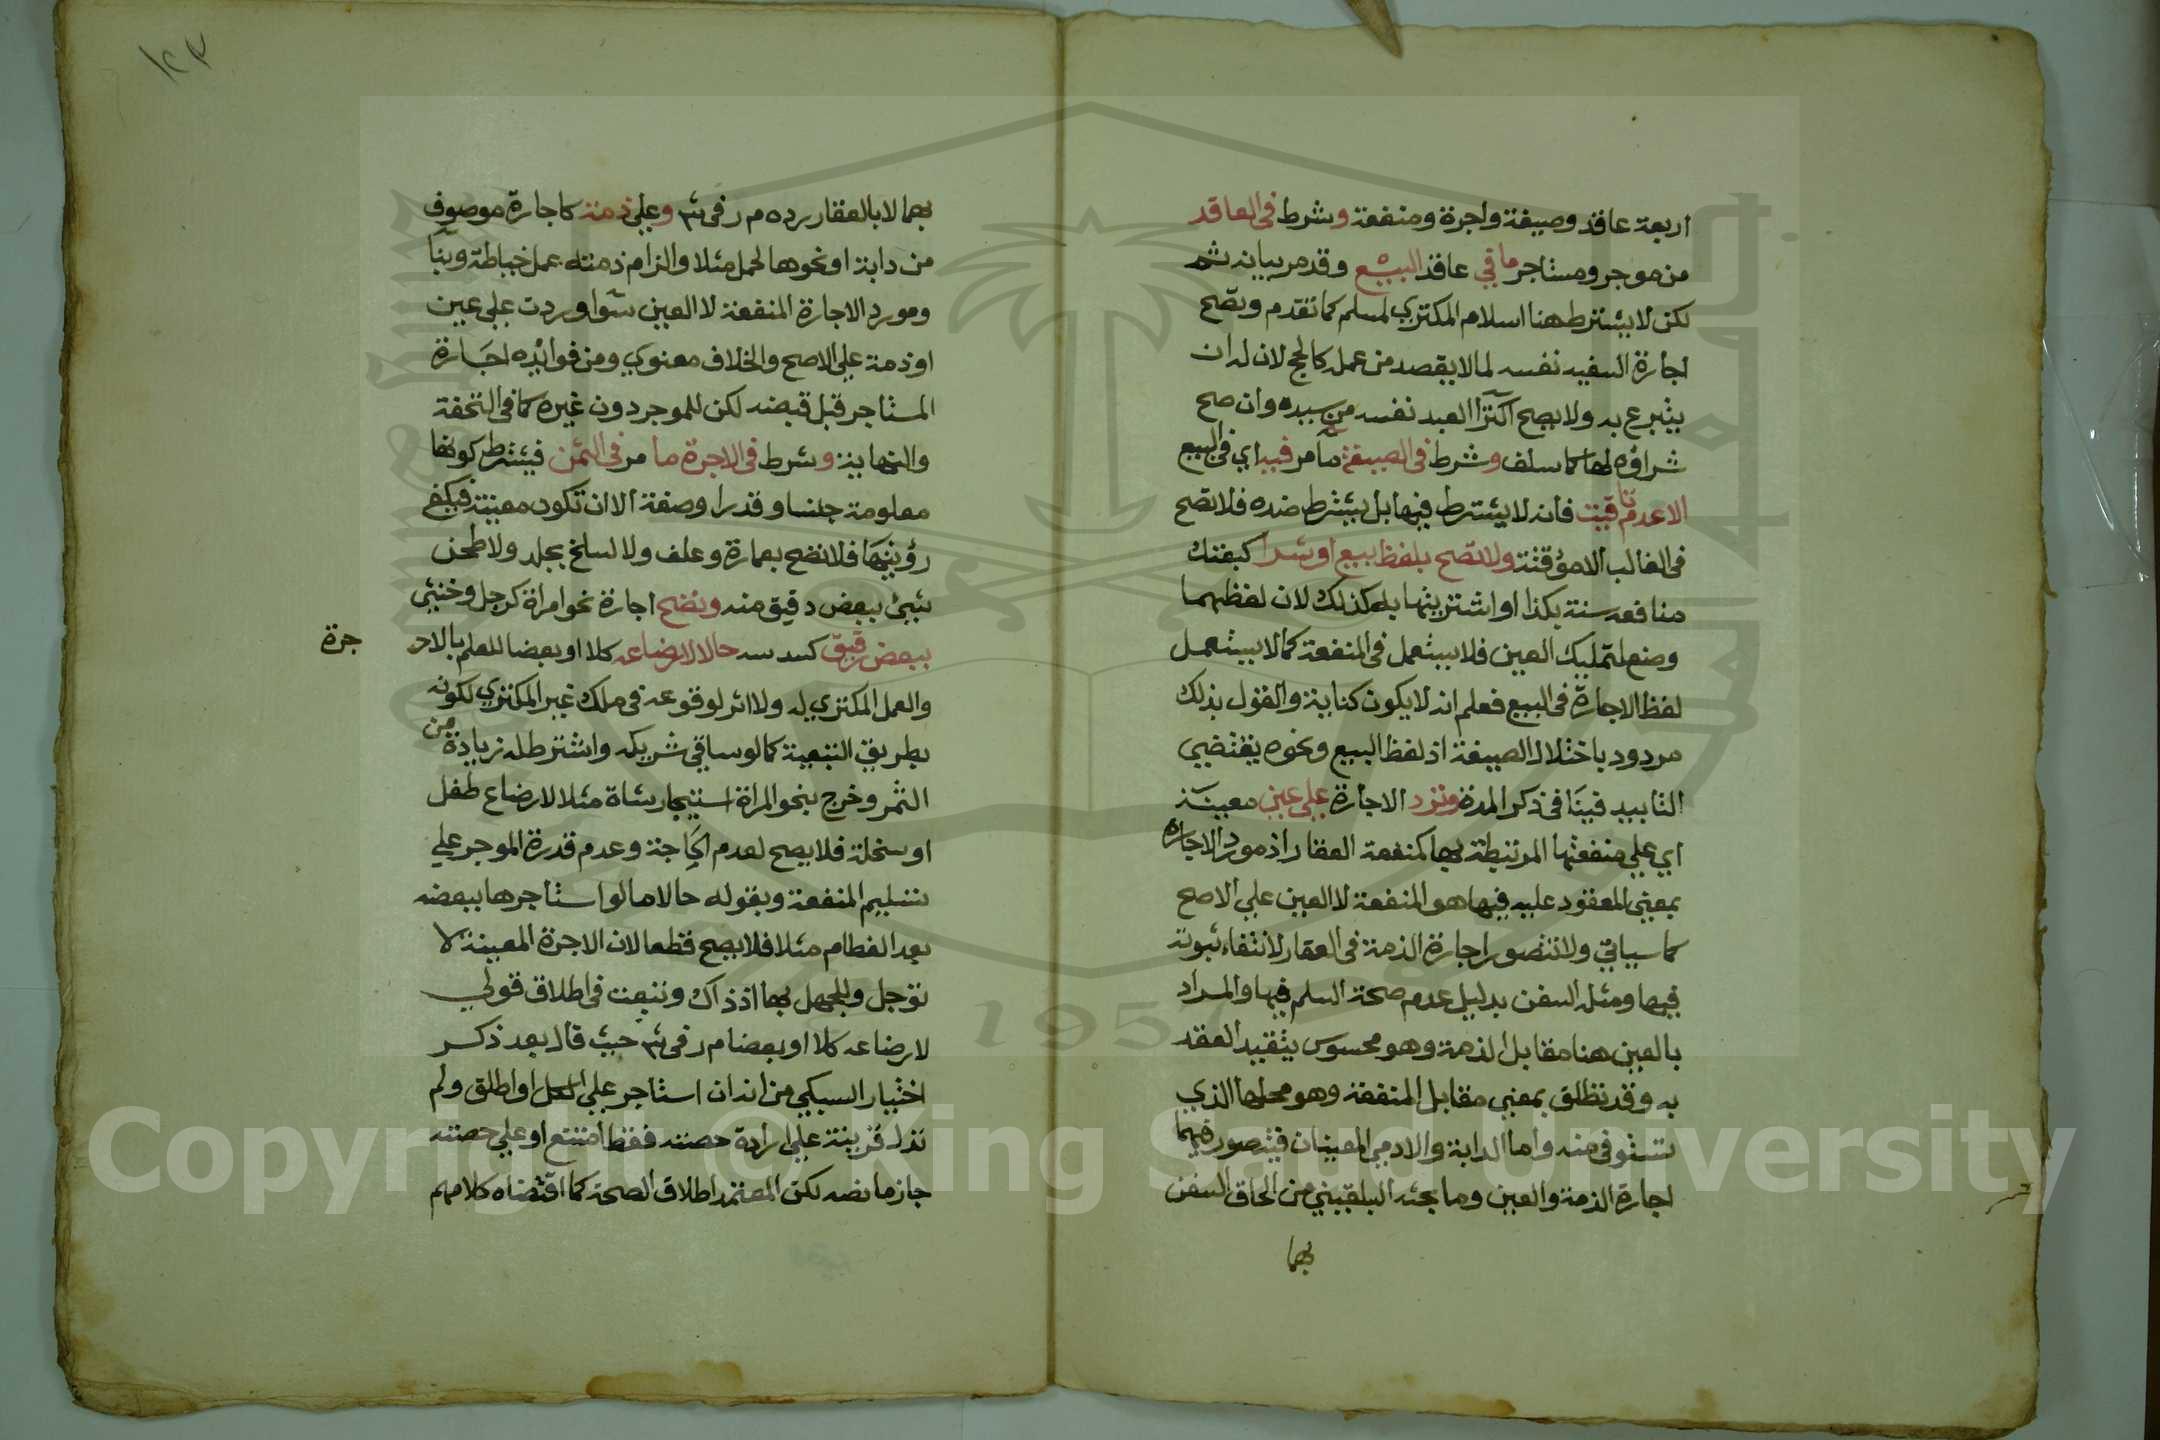 اربعة عاقد وصيغة واجرة ومنفعة وشرط في العاقد
من موجر ومستاجر ما في عاقد البيع وقد مر بيانه ثم
لكن لا يشترط هنا اسلام المكتري لمسلم كما تقدم وتصح
اجارة السفيه نفسه لما لا يقصد من عمله كالحج لان له ان
يتبرع به ولا يصح اكترا العبد نفسه من سيده وان صح
شراؤه لها كما سلف وشرط في الصيغة ما مر فيه اي في البيع
الا عدم تاقيت فانه لا يشترط فيها بل يشترط ضده فلا تصح
في الغالب الا موقتة ولا تصح بلفظ بيع او شرا كبعتك
منافعه سنة بكذا او اشتريتها به كذلك لان لفظهما
وضع لتمليك العين فلا يستعمل في المنفعة كما لا يستعمل
لفظ الاجارة في البيع فعلم انه لا يكون كناية والقول بذلك
مردود باختلال الصيغة اذ لفظ البيع ونحوه يقتضي
التابيد فينافي ذكر المدة وترد الاجارة على عين معينة
اي على منفعتها المرتبطة بها كمنفعة العقار اذ مورد الاجارة
بمعنى المعقود عليه فيها هو المنفعة لا العين على الاصح
كما سياتي ولا تتصور اجارة الذمة في العقار لانتفاء ثبوته
فيها ومثله السفن بدليل عدم صحة السلم فيها والمراد
بالعين هنا مقابل الذمة وهو محسوس يتقيد العقد
به وقد تطلق بمعنى مقابل المنفعة وهو محلها الذي
تستوفى منه واما الدابة والادمي المعينان فيتصور فيهما
اجارة الذمة والعين وما بحثه البلقيني من الحاق السفن
بهما
١٢٣
بهما لا بالعقار رده م ر في شه وعلى ذمة كاجارة موصوف
من دابة او نحوها لحمل مثلا والزام ذمته عمل خياطة وبنا
ومورد الاجارة المنفعة لا العين سوا وردت على عين
او ذمة على الاصح والخلاف معنوي ومن فوائده اجارة
المستاجر قبل قبضه لكن للموجر دون غيره كما في التحفة
والنهاية وشرط في الاجرة ما مر في الثمن فيشترط كونها
معلومة جنسا وقدرا وصفة الا ان تكون معينة فيكفي
رؤيتها فلا تصح بعمارة وعلف ولا لسلخ بجلد ولا طحن
شيئ ببعض دقيق منه وتصح اجارة نحو امراة كرجل وخنثى
ببعض رقيق كسدسه حالا لارضاعه كلا او بعضا للعلم بالاجرة
والعمل المكتري له ولا اثر لوقوعه في ملك غير المكتري لكونه
بطريق التبعية كما لو ساقي شريكه واشترط له زيادة من
الثمر وخرج بنحو المراة استيجار شاة مثلا لارضاع طفل
او سخلة فلا يصح لعدم الحاجة وعدم قدرة الموجر على
تسليم المنفعة وبقوله حالا ما لو استاجرها ببعضه
بعد الفطام مثلا فلا يصح قطعا لان الاجرة المعينة لا
توجل وللجهل بها اذ ذاك وتبعت في اطلاق قولي
لارضاعه كلا او بعضا م ر في شه حيث قال بعد ذكر
اختيار السبكي من انه ان استاجر على الكل او اطلق ولم
تدل قرينة على ارادة حصته فقط امتنع او على حصته
جاز ما نصه لكن المعتمد اطلاق الصحة كما اقتضاه كلامهم
Copyright © King Saud University
1957